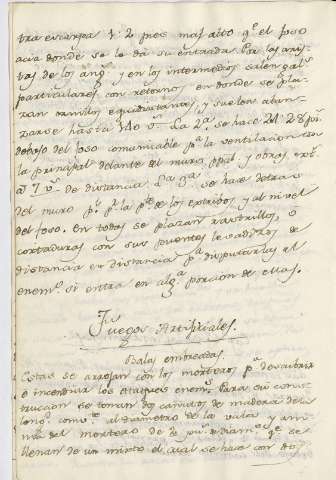 tra escarpa 1: 2 pies mas alto q.e el foso
acia donde se le da su entrada. Por las aris-
tas de los ang.s y en los intermedios salen gal.s
particulares con retornos en donde se pla-
zan ornillos equidistantes, y suelen
hasta 140 v.s La 2.a se hace
debajo del foso comunicable p.a la ventilacion con
la principal delante el muro ppal. y obras ext.s
a 7 v.s de distancia. La 3.a se hace detras
del muro p.r p.a la p.te de los estribos y al nivel
del foso. En todas se plazan rastrillos, ó
cortaduras con sus puentes levadizos de
distancia en distancia p.a disputarlas al
enem.o si entra en alg.a porcion de ellas.
Fuegos Artificiales.
Balas embreadas.
Estas se arrojan con los morteros p.a descubrir
é incendiar los ataques enem.s Para su cons-
truccion se toman dos cañutos de madera de la
long.d como el diametro de la valeria y ani-
ma del mortero de pu.s diam.o q.e se
llenan de un mixto el cual se hace con